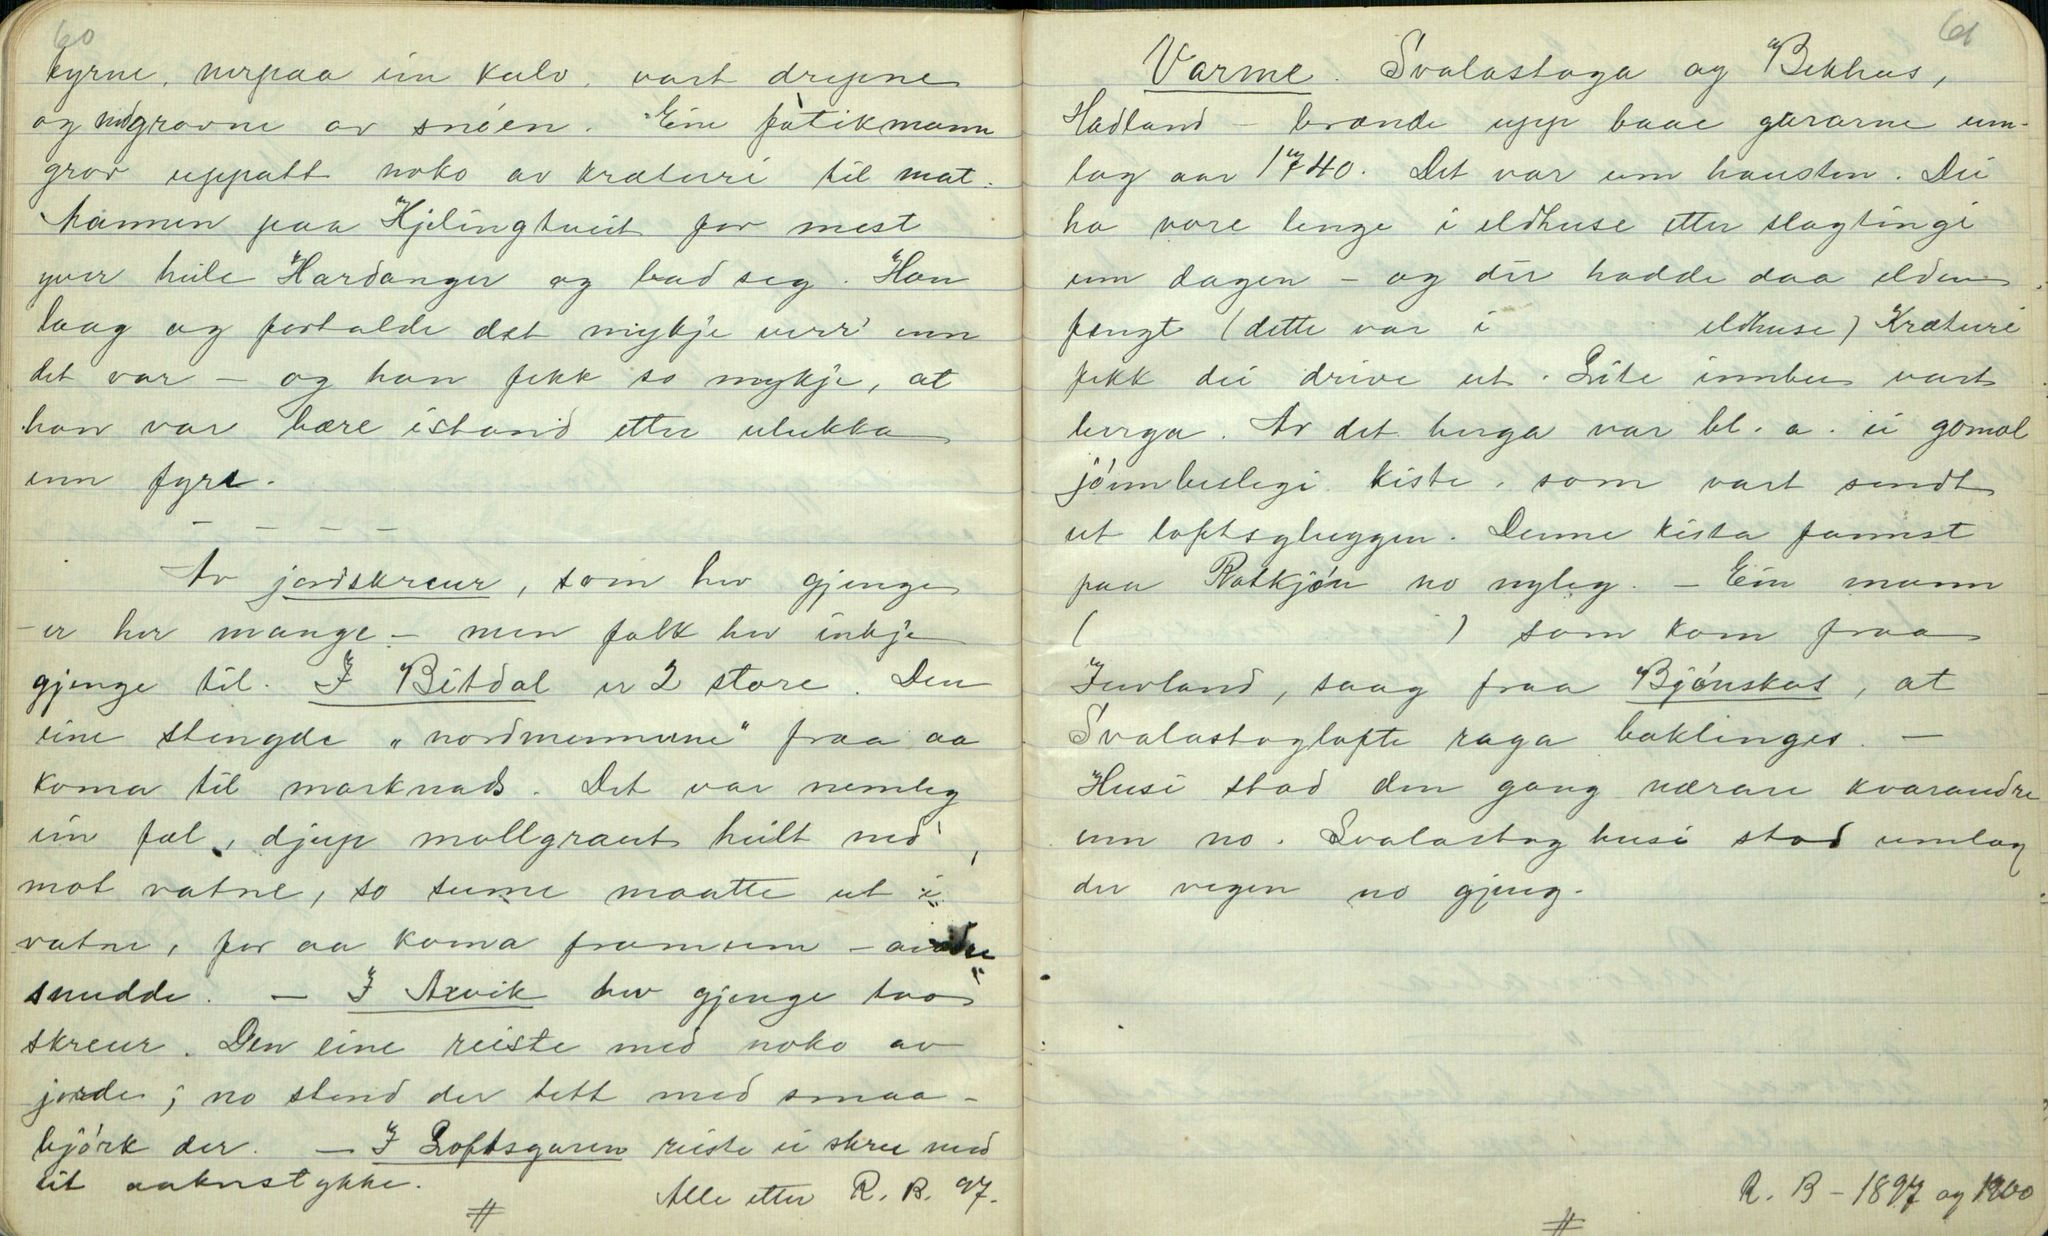 60
kyrne, nerpaa ein kalv, vart drepne
og nedgravne av snóen. Ein fatikmann
grov uppatt noko av kræturi til mat.
Mannen paa Kjelingtveit for mest
yver heile Hardanger og bad seg. Han
laag og fortalde det mykje verr' enn
det var – og han fekk so mykje, at
han var bære istand etter ulukka
enn fyre.
– – – –
Av jordskreur, som hev gjenge
– er her mange – men folk hev inkje
gjenge til. I Bitdal er 2 store. Den
eine stengde "nordmennerne" fraa aa
koma til marknads. Det var nemleg
ein fæl, djup mollgraut heilt ned
mot vatne, so sume maatte ut i
vatne, for aa koma framum – andre
snudde. – I Axvik hev gjenge tvo
skreur. Den eine reiste med noko av
jorde; no stend der tett med smaa-
bjórk der. – I Loftsgaren reiste ei skree med
eit aakerstykke.
Alle etter R. B. 97.
#
61
Varme. Svalastoga og Bekhus,
Hadland – brænde upp baae gararne um-
lag aar 1740. Det var um hausten. Dei
ha vore lenge i eldhuse etter slagtingi
um dagen – og der hadde daa elden
fengt (dette var i eldhuse) Kræturi
fekk dei drive ut. Lite innbu vart
berga. Av det berga var bl. a. ei gomol
jónnbeslegi kiste, som vart sendt
ut loftsgluggen. Denne kista fannst
paa Rotkjón no nyleg. – Ein mann
( ) som kom fraa
Juvland, saag fraa Bjónskot, at
Svalastoglofte raga baklinges. –
Husi stod den gong nærare kvarandre
enn no. Svalastoghusi stod umlag
der vegen no gjeng.
R. B – 1897 og 1900
#